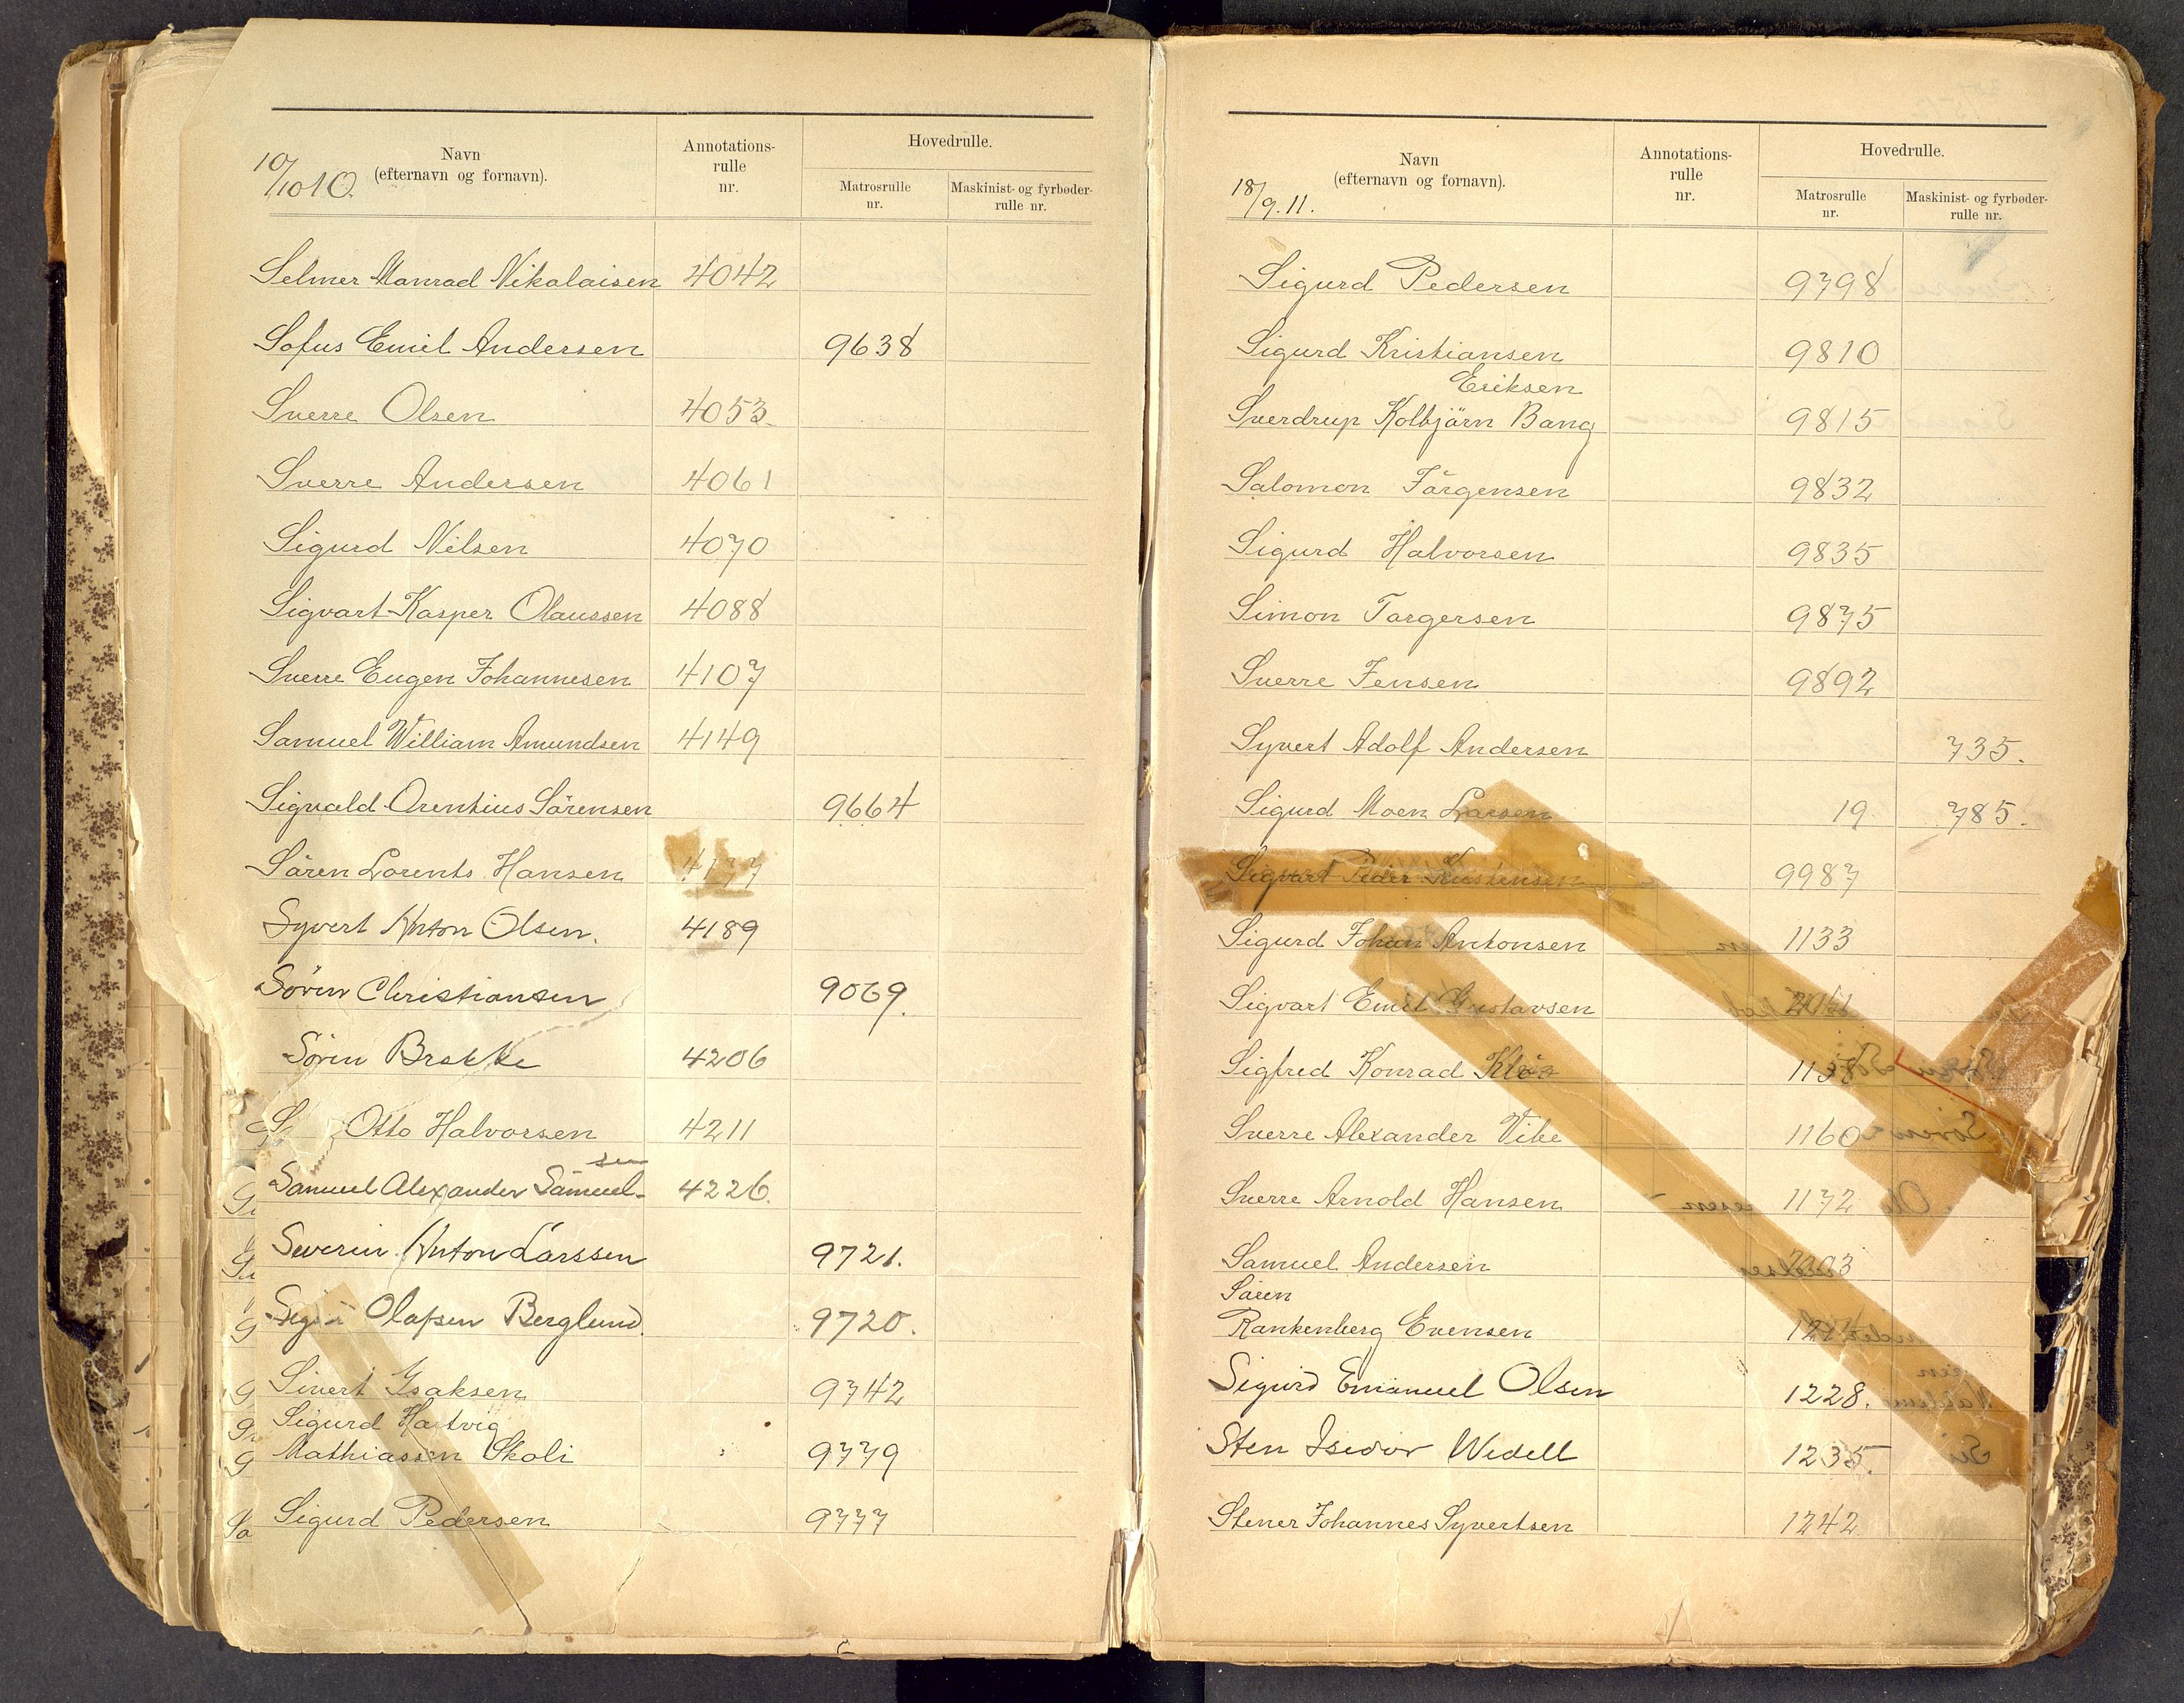 10/10 10.
Navn
(efternavn og fornavn).
Annotations-
rulle
nr.
Hovedrulle.
Matrosrulle
nr.
Maskinist- og fyrbøder-
rulle nr.
Selmer Manrad Nikolaisen 4042
Sofus Emil Andersen 9638
Sverre Olsen 4053.
Sverre Andersen 4061
Sigurd Nilsen 4070
Sigvart Kasper Olaussen 4088
Sverre Eugen Johannesen 4107
Samuel William Amundsen 4149
Sigvald Orentius Sörensen 9664
Sören Lorents Hansen 4177
Syvert Anton Olsen. 4189
Sören Christiansen 9069.
Sören Brekke 4206
Otto Halvorsen 4211
sen
Samuel Alexander Samuel- 4226.
Severin Anton Larssen 9721.
Olafsen Berglund. 9720.
Sivert Isaksen 9742
Sigurd Hartvig
Mathiassen Skoli 9779
Sigurd Pedersen 9777
18/9.11.
Navn
(efternavn og fornavn).
Annotations-
rulle
nr.
Hovedrulle.
Matrosrulle
nr.
Maskinist- og fyrbøder-
rulle nr.
Sigurd Pedersen 9798
Sigurd Kristiansen 9810
Eriksen
Sverdrup Kolbjörn Bang 9815
Salomon Jörgensen 9832
Sigurd Halvorsen 9835
Simon Torgersen 9875
Sverre Jensen 9892
Syvert Adolf Andersen 735.
Sigurd Moen Larsen 19 785.
Sigvart Peder Kristensen 9987
Sigurd Johan Antonsen 1133
Sigvart Emil Gustavsen
Sigfred Konrad 1138
Sverre Alexander Vibe 1160
Sverre Arnold Hansen 1172
Samuel Andersen
Sören
Rankenberg Evensen
Sigurd Emanuel Olsen 1228.
Sten Isidor Widell 1235.
Stener Johannes Syvertsen 1242